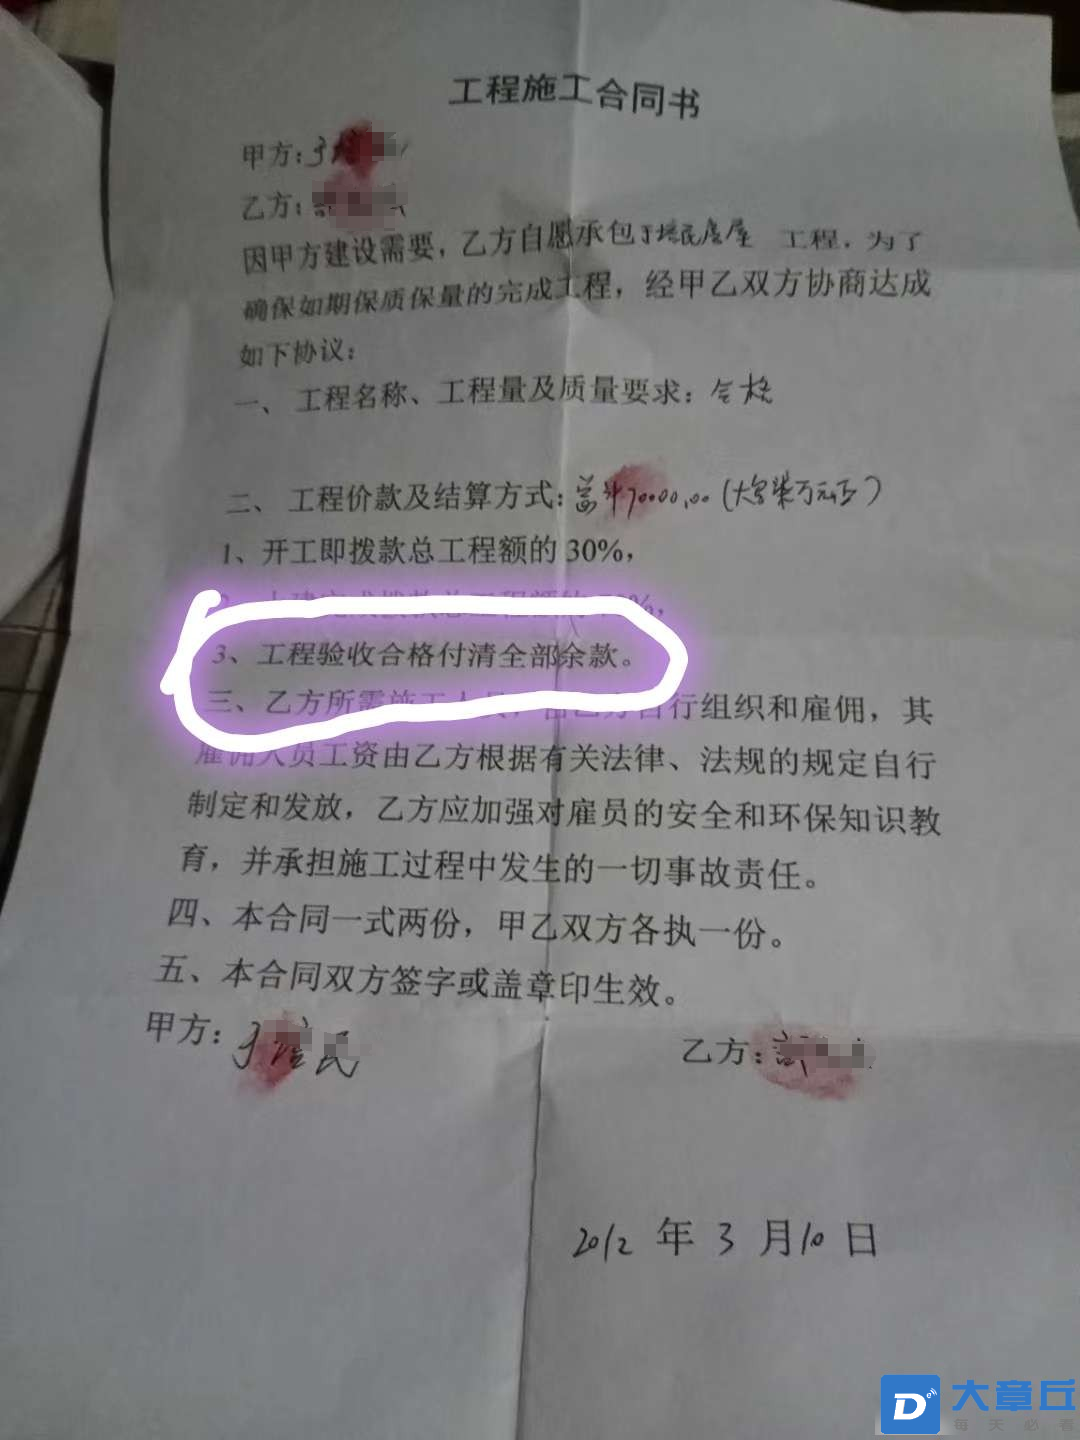 工程施工合同书
甲方：于
乙方：
因甲方建设需要，乙方自愿承包于培民房屋 工程，为了
确保如期保质保量的完成工程，经甲乙双方协商达成
如下协议：
一、工程名称、工程量及质量要求：合格
二、工程价款及结算方式：70000.00（大写柒万元正）
1、开工即拨款总工程额的 30%，
3、工程验收合格付清全部余款。
三、乙方所需施工人员，由乙方自行组织和雇佣，其
雇佣人员工资由乙方根据有关法律、法规的规定自行
制定和发放，乙方应加强对雇员的安全和环保知识教
育，并承担施工过程中发生的一切事故责任。
四、本合同一式两份，甲乙双方各执一份。
五、本合同双方签字或盖章印生效。
甲方：于 民 乙方：
2012 年 3 月 10 日
D
大章丘
每天必看